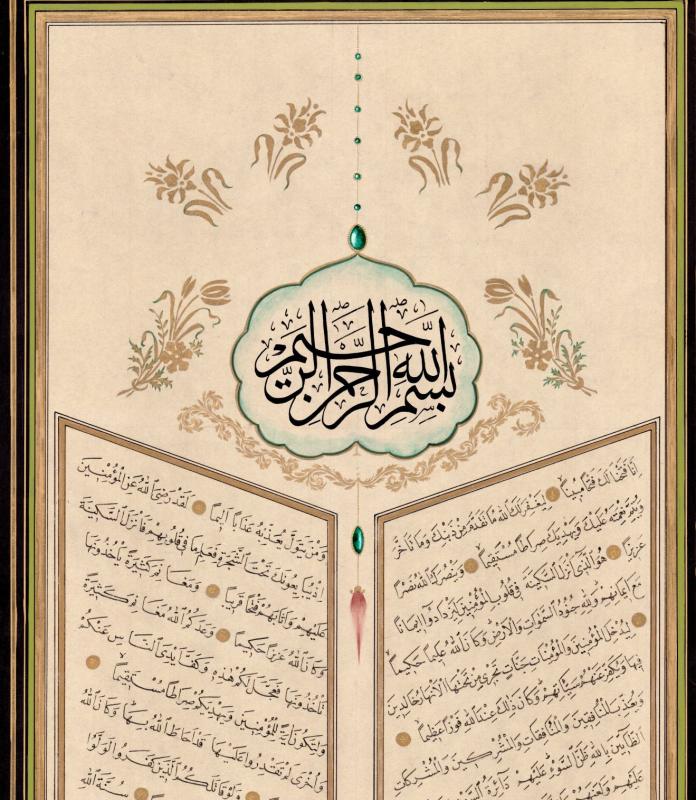 بسم الله الرحمن الرحيم
انا فتحنا لك فتحا مبينا ليغفر لك الله ما تقدم من ذنبك وما تأخر
ويتم نعمته عليك ويهديك صراطا مستقيما وينصرك الله نصرا
عزيزا هو الذى انزل السكينة فى قلوب المؤمنين ليزدادوا ايمانا
مع ايمانهم ولله جنود السموات والارض وكان الله عليما حكيما
ليدخل المؤمنين والمؤمنات جنات تجرى من تحتها الانهار خالدين
فيها ويكفر عنهم سيئاتهم وكان ذلك عند الله فوزا عظيما
ويعذب المنافقين والمنافقات والمشركين والمشركات
الظانين بالله ظن السوء عليهم دائرة السوء
عليهم ولعنهم
ومن يتول يعذبه عذابا اليما لقد رضى الله عن المؤمنين
اذ يبايعونك تحت الشجرة فعلم ما فى قلوبهم فانزل السكينة
عليهم واثابهم فتحا قريبا ومغانم كثيرة يأخذونها
وكان الله عزيزا حكيما وعدكم الله مغانم كثيرة
تأخذونها فعجل لكم هذه وكف ايدى الناس عنكم
ولتكون اية للمؤمنين ويهديكم صراطا مستقيما
واخرى لم تقدروا عليها قد احاط الله بها وكان الله
ولو قاتلكم الذين كفروا لولوا
سنة الله